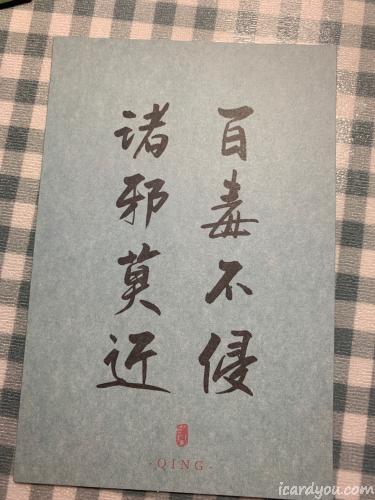 百毒不侵
诸邪莫近
·QING·
icardyou.com